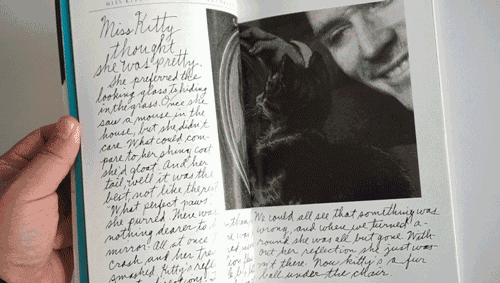 MISS KITTY
Miss Kitty
thought
she was pretty.
She preferred the
looking glass to hiding
in the grass. Once she
saw a mouse in the
house, but she didn't
care. What could com-
pare to her shiny coat
she'd gloat. And her
tail, well it was the
best, not like the rest
What perfect paws
she purred. There was
nothing dearer to
mirror. All at once
crash, and her
smashed. Kitty's
We could all see that something was
wrong, and when we turned a-
round she was all but gone. With-
out her reflection she just was
n't there. Now kitty's a fur
ball under the chair.